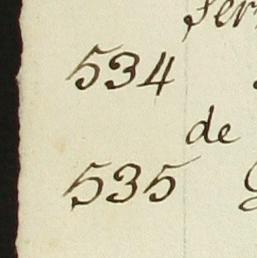 534
de
535